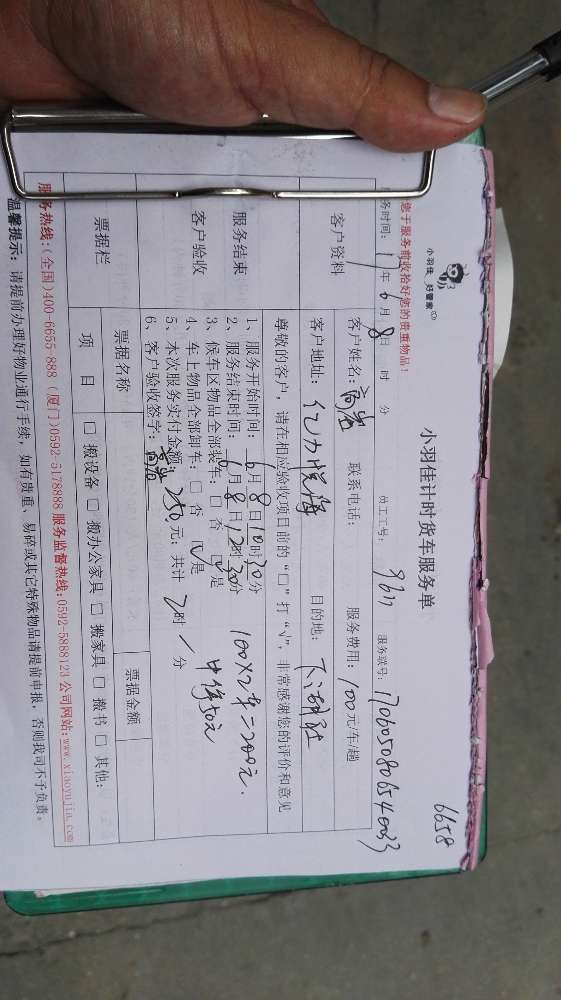 6658
小羽佳 好管家
小羽佳计时货车服务单
您于服务前收拾好您的贵重物品!
务时间: 17年 6月 8日 时 分 员工工号: 9617 服务联号: 1706050806540033
客户资料 客户姓名: 联系电话: 服务费用: 100元/车/趟
客户地址: 亿力悦海 目的地:
服务结束
客户验收
尊敬的客户,请在相应验收项目前的“□”打“√”,非常感谢您的评价和意见
1、服务开始时间: 6月8日10时30分 100×2车=200元.
2、服务结束时间: 6月8日12时30分 中停50元
3、候车区物品全部装车: □ 否 ☑ 是
4、车上物品全部卸车: □ 否 ☑ 是
5、本次服务实付金额: 250元, 共计 2时 / 分
6、客户验收签字:
票据栏 票据名称 票据金额
项目 □ 搬设备 □ 搬办公家具 □ 搬家具 □ 搬书 □ 其他:
服务热线:(全国)400-6655-888 (厦门)0592-5178888 服务监督热线:0592-5888123 公司网站:www.xiaoyujia.com
温馨提示: 请提前办理好物业通行手续, 如有贵重、易碎或其它特殊物品请提前申报, 否则我司不予负责。